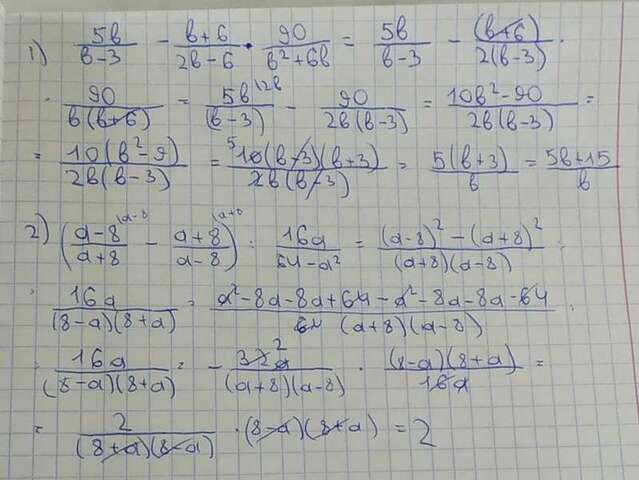 1) 5в/(в-3) - (в+6)/(2в-6) · 90/(в²+6в) = 5в/(в-3) - (в+6)/(2(в-3)) ·
· 90/(в(в+6)) = 5в^{|2в}/(в-3) - 90/(2в(в-3)) = (10в²-90)/(2в(в-3)) =
= 10(в²-9)/(2в(в-3)) = ⁵10(в-3)(в+3)/(2в(в-3)) = 5(в+3)/в = (5в+15)/в
2) ((a-8)^{|a-8}/(a+8) - (a+8)^{|a+8}/(a-8)) : 16a/(64-a²) = ((a-8)²-(a+8)²)/((a+8)(a-8)) :
: 16a/((8-a)(8+a)) = (a²-8a-8a+64-a²-8a-8a-64)/(64 (a+8)(a-8)) :
: 16a/((8-a)(8+a)) = - 32²a/((a+8)(a-8)) · (8-a)(8+a)/(16a) =
= 2/((8+a)(8-a)) · (8-a)(8+a) = 2